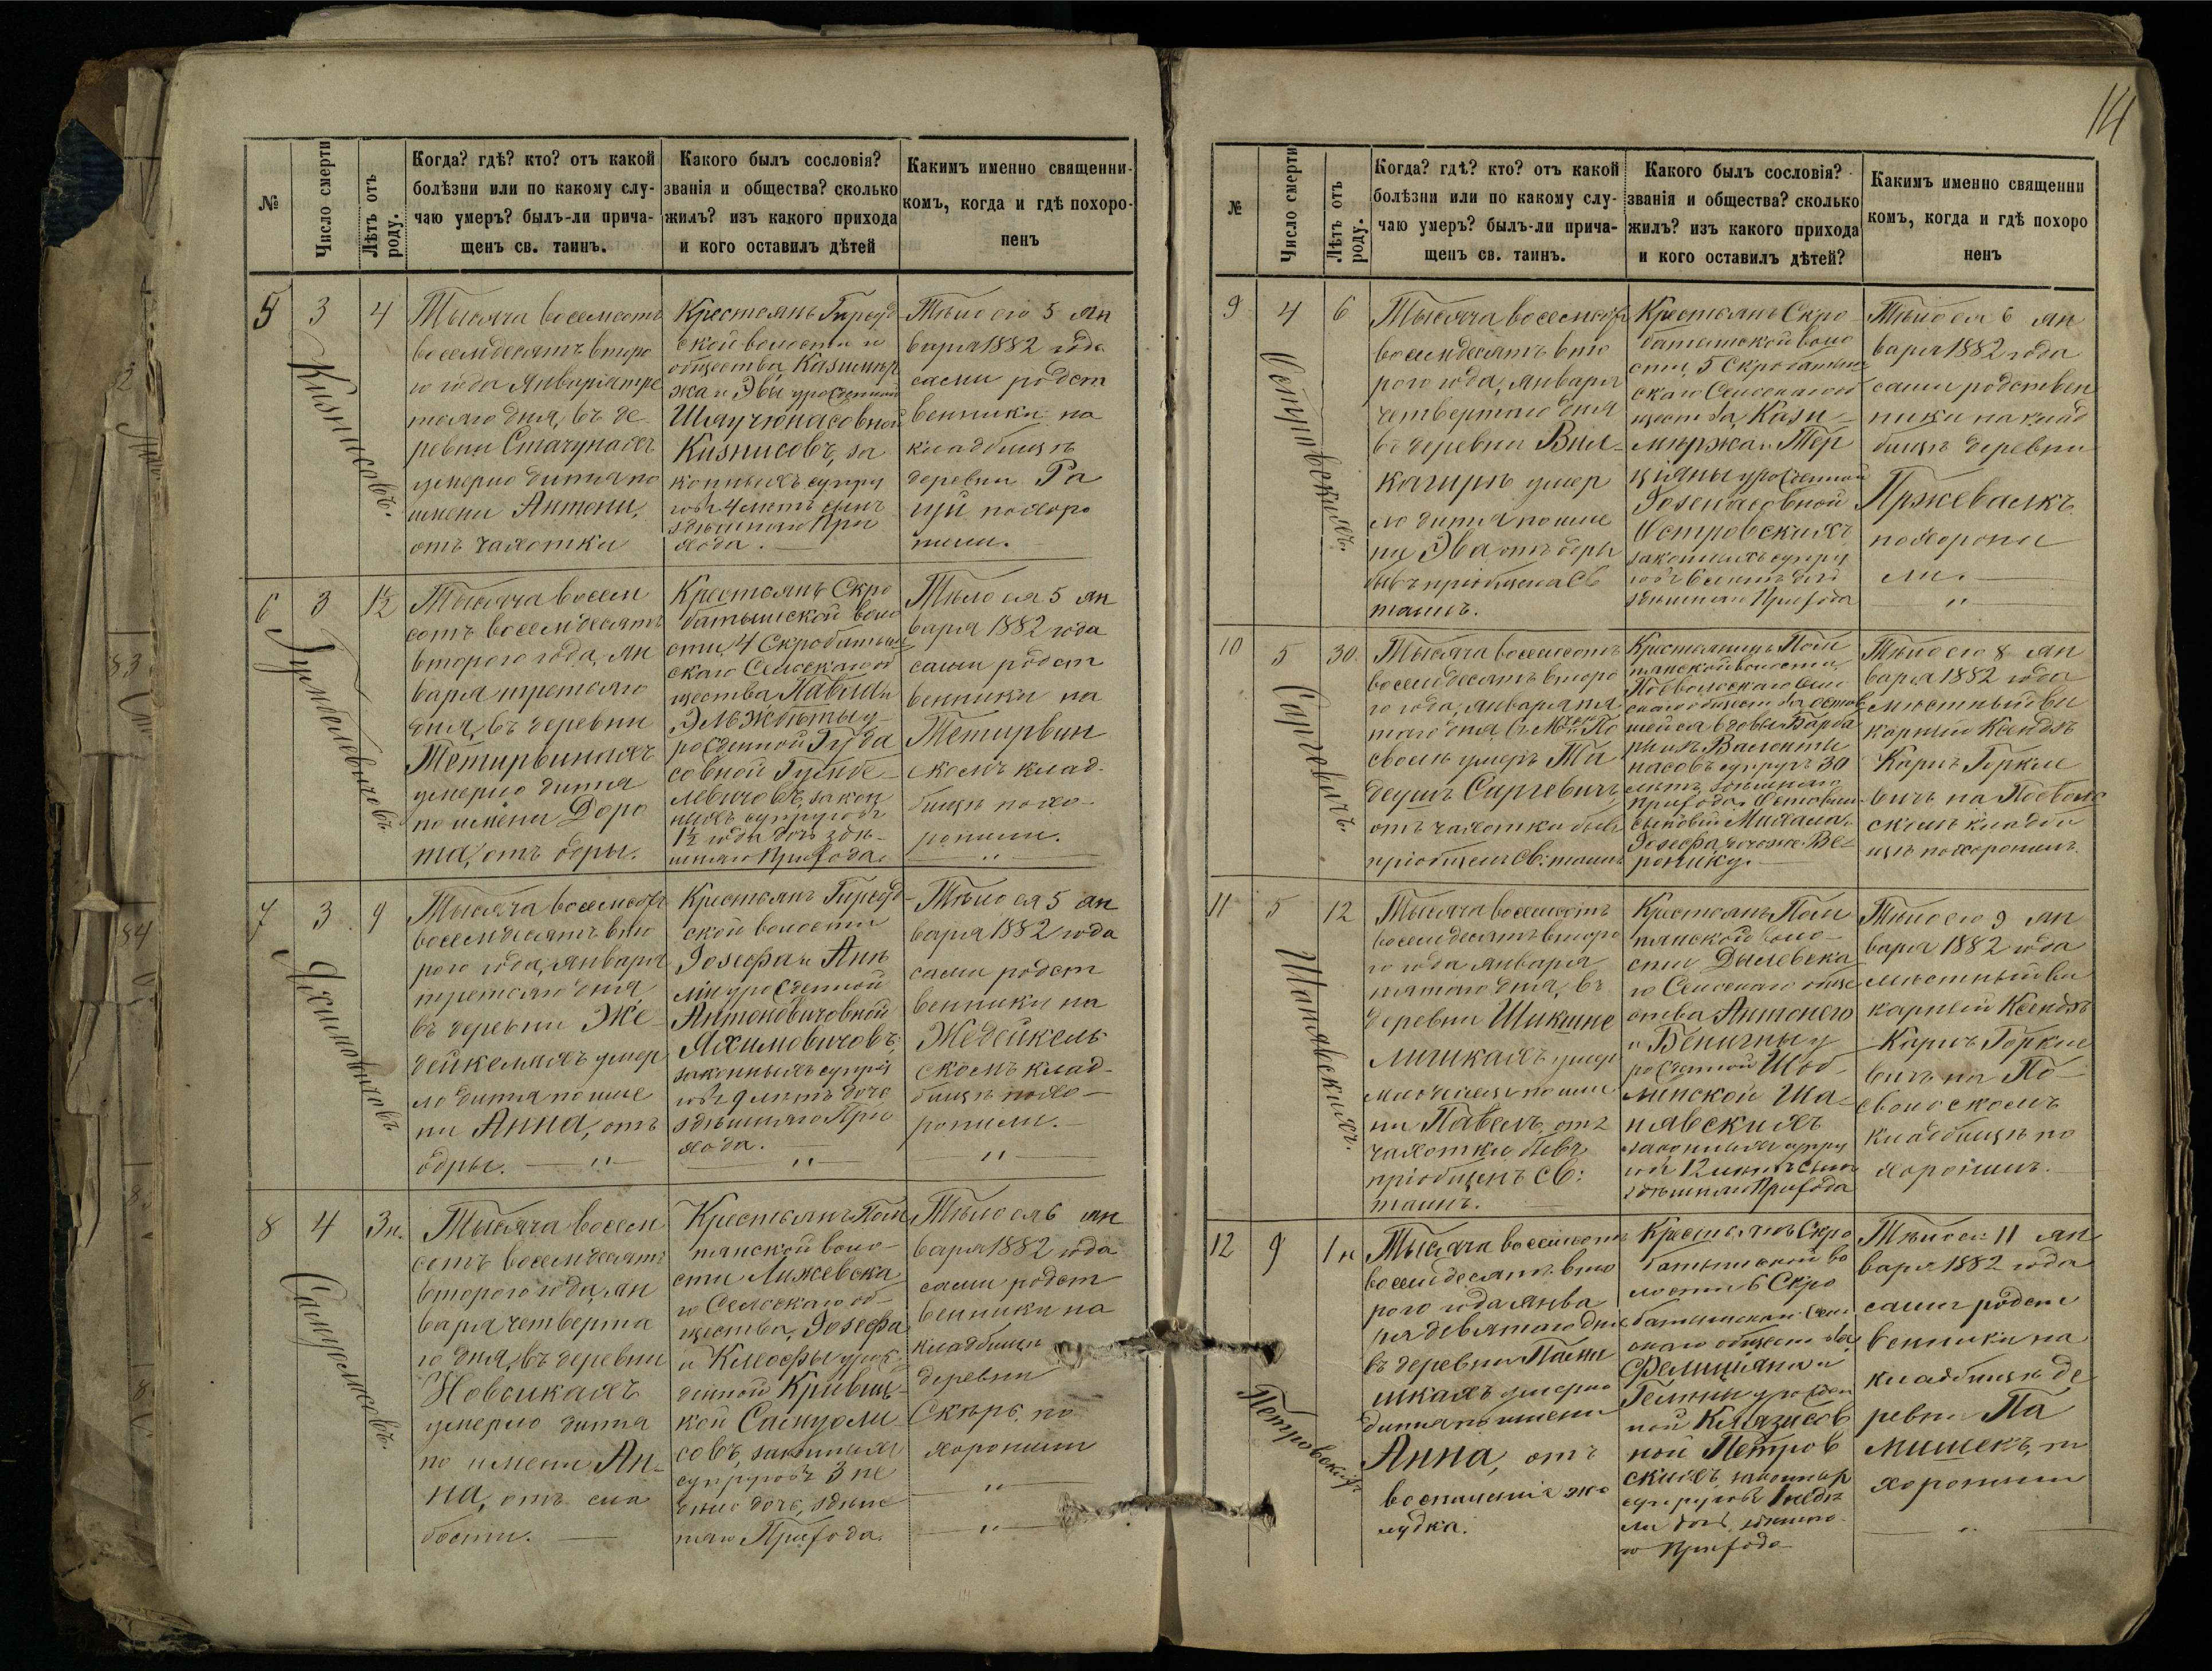 14
№
Число смерти
Лѣтъ отъ роду.
Когда? гдѣ? кто? отъ какой
болѣзни или по какому слу-
чаю умеръ? былъ-ли прича-
щенъ св. таинъ.
Какого былъ сословія?
званія и общества? сколько
жилъ? изъ какого прихода
и кого оставилъ дѣтей
Какимъ именно священни-
комъ, когда и гдѣ похоро-
ненъ
5
3
4
Кизнисовъ.
Тысяча восемсотъ
восемдесятъ второ
го года Января тре
тьяго дня, въ де
ревни Стачунахъ
умерло дитя по
имени Антони,
отъ чахотки
Крестьянъ Гирсуд
ской волости и
общества, Казимир
жа и Эвы урожденной
Шлаучюнасовной
Кизнисовъ, за
конныхъ супру
говъ 4 летъ сынъ
здѣшняго При
хода.
Тѣло его 5 Ян
варя 1882 года
сами родст
венники на
кладбищѣ
деревни Ра
гуй похоро
нили.
6
3
1½
Гумбелевичовъ
Тысяча восем
сотъ восемдесятъ
второго года, Ян
варя третьяго
дня, въ деревни
Тетирвинахъ
умерло дитя
по имени Доро
та, отъ одры.
Крестьянъ Скро
батышской воло
сти, 4 Скробатыш
скаго Сельскаго об
щества, Павла и
Эльжбѣты у-
рожденной Гуда
совной Гумбе-
левичовъ, закон
ныхъ супруговъ
1½ года дочь здѣ-
шняго Прихода.
Тѣло ея 5 Ян
варя 1882 года
сами родст
венники на
Тетирвин
скомъ клад-
бищѣ похо-
ронили.
7
3
9
Яхимовичовъ
Тысяча восемсотъ
восемдесятъ вто
рого года, Января
третьяго дня,
въ деревни Же-
дейкеляхъ умер
ло дитя по име
ни Анна, отъ
одры.
Крестьянъ Гирсуд
ской волости
Іозефа и Анѣ
ли урожденной
Антоновичовной
Яхимовичовъ,
законныхъ супру
говъ 9 летъ дочь
здѣшняго При
хода.
Тѣло ея 5 Ян
варя 1882 года
сами родст
венники на
Жедейкель
скомъ клад-
бищѣ похо-
ронили.
8
4
3 н.
Самуолисовъ.
Тысяча восем
сотъ восемдесятъ
второго года, Ян
варя четверта
го дня, въ деревни
Новсикахъ
умерло дитя
по имени Ан-
на, отъ сла
бости.
Крестьянъ Пом
пянской воло-
сти
го Сельскаго об-
щества, Іозефа
и Клеофы урож-
денной Кривиц-
кой Самуоли
совъ, законныхъ
супруговъ 3 не
дѣли дочь, здѣш
няго Прихода.
Тѣло ея 6 Ян
варя 1882 года
сами родст
венники на
кладбищѣ
деревни
Скѣръ по
хоронили
№
Число смерти
Лѣтъ отъ роду.
Когда? гдѣ? кто? отъ какой
болѣзни или по какому слу-
чаю умеръ? былъ-ли прича-
щенъ св. таинъ.
Какого былъ сословія?
званія и общества? сколько
жилъ? изъ какого прихода
и кого оставилъ дѣтей?
Какимъ именно священни
комъ, когда и гдѣ похоро
ненъ
9
4
6
Островскихъ.
Тысяча восемсотъ
восемдесятъ вто
рого года, Января
четвертаго дня
въ деревни Вил-
кагирѣ умер
ло дитя по име
ни Эва отъ одры
бывъ пріобщена Св
таинъ.
Крестьянъ Скро
батышской воло
сти, 5 Скробатыш
скаго Сельскаго об
щества, Кази-
миржа и Тер
ціяны урожденной
Іозенасовной
Островскихъ
законныхъ супру
говъ 6 летъ дочь
здѣшняго Прихода
Тѣло ея 6 Ян
варя 1882 года
сами родствен
ники на клад
бищѣ деревни
Пржевалкъ
похорони
ли.
10
5
30.
Саргевичъ.
Тысяча восемсотъ
восемдесятъ второ
го года, Января пя
таго дня, въ М. По
сволѣ умеръ Та
деушъ Саргевичъ,
отъ чахотки бывъ
пріобщенъ Св: таинъ
Крестьянинъ Пом
пянской волости,
Посвольскаго Сель
скаго общества остав
шейся вдовы Барба
ры изъ Валюнти
насовъ супругъ 30
летъ, здѣшняго
прихода. Оставилъ
сыновей Михала и
Іозефа дочь Ве-
ронику.
Тѣло его 8 Ян
варя 1882 года
мѣстный ви
карный Ксендзъ
Карлъ Горкле
вичъ на Посволь
скомъ кладби
щѣ похоронилъ.
11
5
12
Шанявскихъ.
Тысяча восемсотъ
восемдесятъ второ
го года Января
пятаго дня, въ
деревни Шикшне
личкахъ умеръ
младенецъ по име
ни Павелъ, отъ
чахотки бывъ
пріобщенъ Св:
таинъ.
Крестьянъ Пом
пянской воло-
сти Дылевска
го Сельскаго обще
ства Антонего
и Бенигны у
рожденной Шод-
линской Ша-
нявскихъ
законныхъ супру
говъ 12 летъ сынъ
здѣшняго Прихода
Тѣло его 9 Ян
варя 1882 года
мѣстный ви
карный Ксендзъ
Карлъ Горкле
вичъ на По-
свольскомъ
кладбищѣ по
хоронилъ.
12
9
1 н
Петровскихъ
Тысяча восемсотъ
восемдесятъ вто
рого года Янва
ря девятаго дня
въ деревни
умерло
дитя по имени
Анна, отъ
воспаленія же
лудка.
Крестьянъ Скро
батышской во
лости 6 Скро
батышскаго Сель
скаго общества
Фелиціяна и
Гелены урожден
ной Клязисов
ной Петров
скихъ, законныхъ
супруговъ 1 недѣ
ли дочь, здѣшня
го Прихода
Тѣло ея 11 Ян
варя 1882 года
сами родст
венники на
кладбищѣ де
ревни Па
мишекъ, по
хоронили